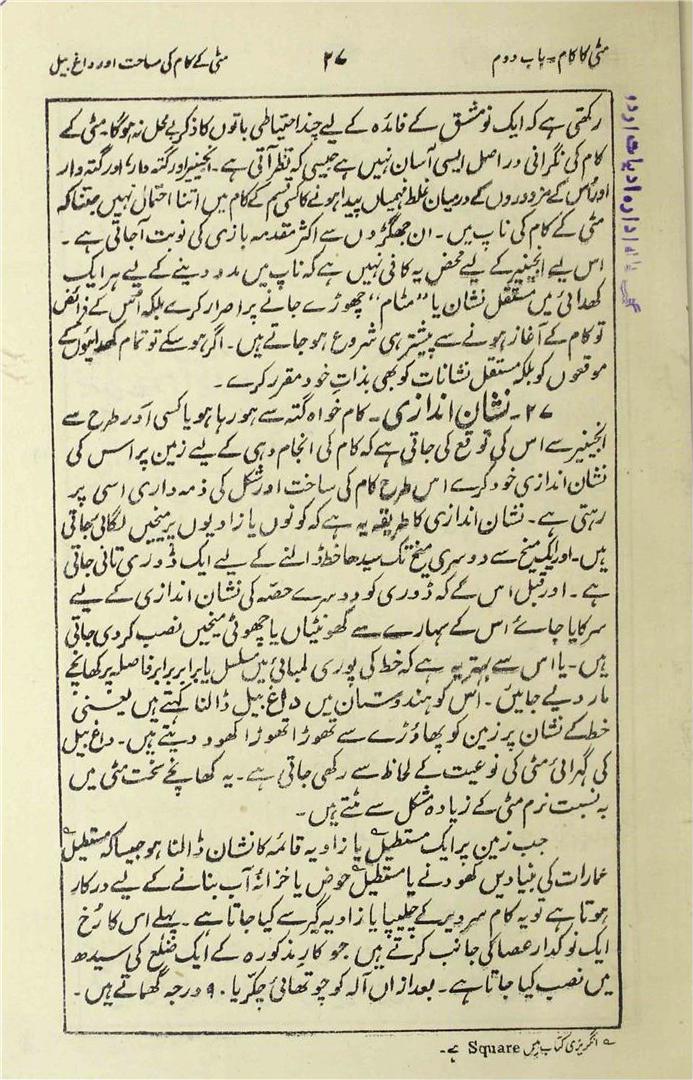 مٹی کا کام = باب دوم ۲۷ مٹی کے کام کی مساحت اور داغ بیل
رکھتی ہے کہ ایک نو مشق کے فائدہ کے لیے چند احتیاطی باتوں کا ذکر بے محل نہ ہوگا۔ مٹی کے
کام کی نگرانی در اصل ایسی آسان نہیں ہے جیسی کہ نظر آتی ہے۔ انجینیر اور گتہ دار، اور گتہ دار
اور اُس کے مزدوروں کے درمیان غلط فہمیاں پیدا ہونے کا کسی قسم کے کام میں اتنا احتمال نہیں جتنا کہ
مٹی کے کام کی ناپ میں۔ ان جھگڑوں سے اکثر مقدمہ بازی کی نوبت آجاتی ہے۔
اس لیے انجینیر کے لیے محض یہ کافی نہیں ہے کہ ناپ میں مدد دینے کے لیے ہر ایک
کھدائی میں مستقل نشان یا ”مٹام“ چھوڑے جانے پر اصرار کرے بلکہ اُس کے فرائض
تو کام کے آغاز ہونے سے پیشتر ہی شروع ہو جاتے ہیں۔ اگر ہو سکے تو تمام کھدائیوں کے
موقعوں کو بلکہ مستقل نشانات کو بھی بذاتِ خود مقرر کرے۔
۲۷۔ نشان اندازی۔ کام خواہ گتہ سے ہو رہا ہو یا کسی اَور طرح سے
انجینیر سے اس کی توقع کی جاتی ہے کہ کام کی انجام دہی کے لیے زمین پر اس کی
نشان اندازی خود کرے اس طرح کام کی ساخت اور شکل کی ذمہ داری اسی پر
رہتی ہے۔ نشان اندازی کا طریقہ یہ ہے کہ کونوں یا زاویوں پر میخیں لگائی جاتی
ہیں۔ اور ایک میخ سے دوسری میخ تک سیدھا خط ڈالنے کے لیے ایک ڈوری تانی جاتی
ہے۔ اور قبل اس کے کہ ڈوری کو دوسرے حصّہ کی نشان اندازی کے لیے
سرکایا جائے اس کے سہارے سے کھونٹیاں یا چھوٹی میخیں نصب کر دی جاتی
ہیں۔ یا اس سے بہتر یہ ہے کہ خط کی پوری لمبائی میں مسلسل یا برابر برابر فاصلہ پر کھانچے
مار دیے جائیں۔ اس کو ہندوستان میں داغ بیل ڈالنا کہتے ہیں یعنی
خط کے نشان پر زمین کو پھاوڑے سے تھوڑا تھوڑا کھود دیتے ہیں۔ داغ بیل
کی گہرائی مٹی کی نوعیت کے لحاظ سے رکھی جاتی ہے۔ یہ کھانچے سخت مٹی میں
بہ نسبت نرم مٹی کے زیادہ مشکل سے مٹتے ہیں۔
جب زمین پر ایک مستطیل یا زاویہ قائمہ کا نشان ڈالنا ہو جیسا کہ مستطیل
عمارات کی بنیادیں کھودنے یا مستطیل حوض یا خزانۂ آب بنانے کے لیے درکار
ہوتا ہے تو یہ کام سرویر کے چلیپا یا زاویہ گیر سے کیا جاتا ہے۔ پہلے اس کا رُخ
ایک نوکدار عصا کی جانب کرتے ہیں جو کارِ مذکورہ کے ایک ضلع کی سیدھ
میں نصب کیا جاتا ہے۔ بعد ازاں آلہ کو چوتھائی چکّر یا ۹۰ درجہ گھماتے ہیں۔
ـہ انگریزی کتاب میں Square ہے۔